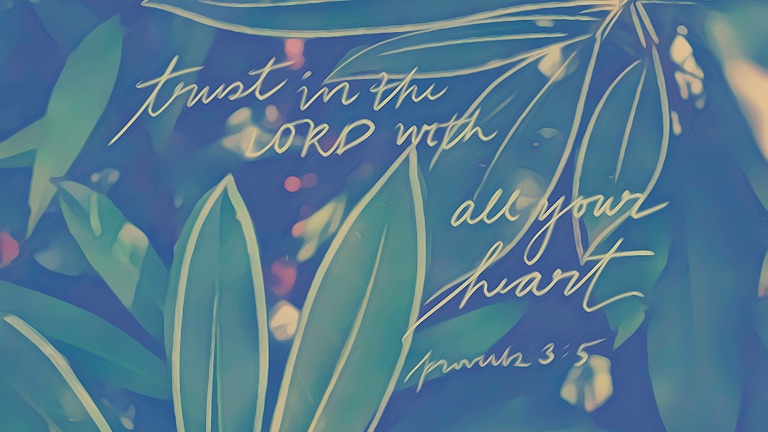 trust in the
LORD with
all your
heart
proverbs 3:5